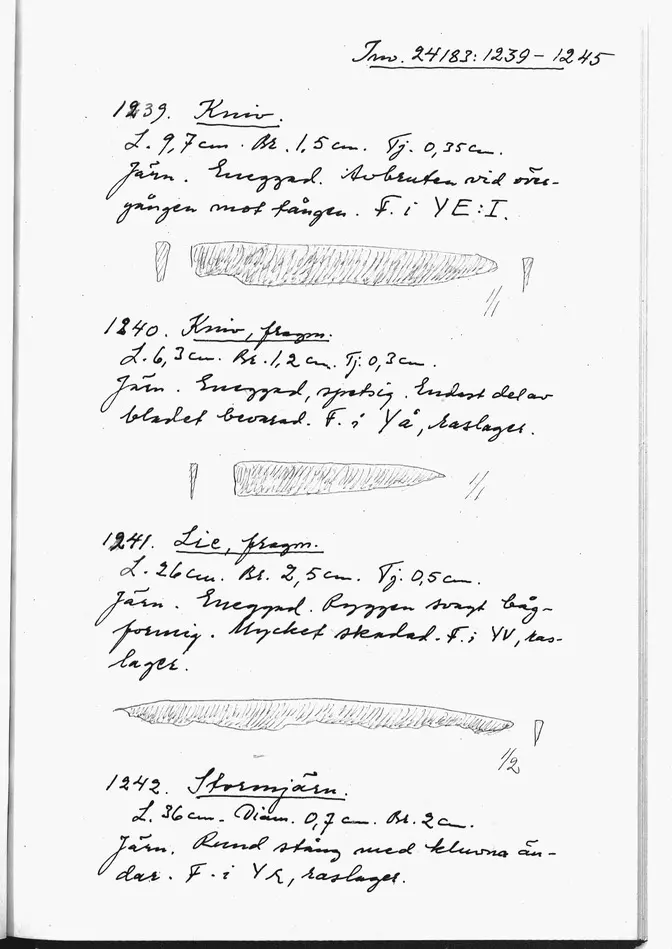 Inv. 24183:1239–1245
1239. Kniv.
L. 9,7 cm. Br. 1,5 cm. Tj. 0,35 cm.
Järn. Eneggad. Avbruten vid över-
gången mot tången. F. i YE:I.
1/1
1240. Kniv, fragm.
L. 6,3 cm. Br. 1,2 cm. Tj. 0,3 cm.
Järn. Eneggad, spetsig. Endast del av
bladet bevarad. F. i Yå, raslager.
1/1
1241. Lie, fragm.
L. 26 cm. Br. 2,5 cm. Tj. 0,5 cm.
Järn. Eneggad. Ryggen svagt båg-
formig. Mycket skadad. F. i YV, ras-
lager.
1/2
1242. Stormjärn.
L. 36 cm. Diam. 0,7 cm. Br. 2 cm.
Järn. Rund stång med kluvna än-
dar. F. i YR, raslager.